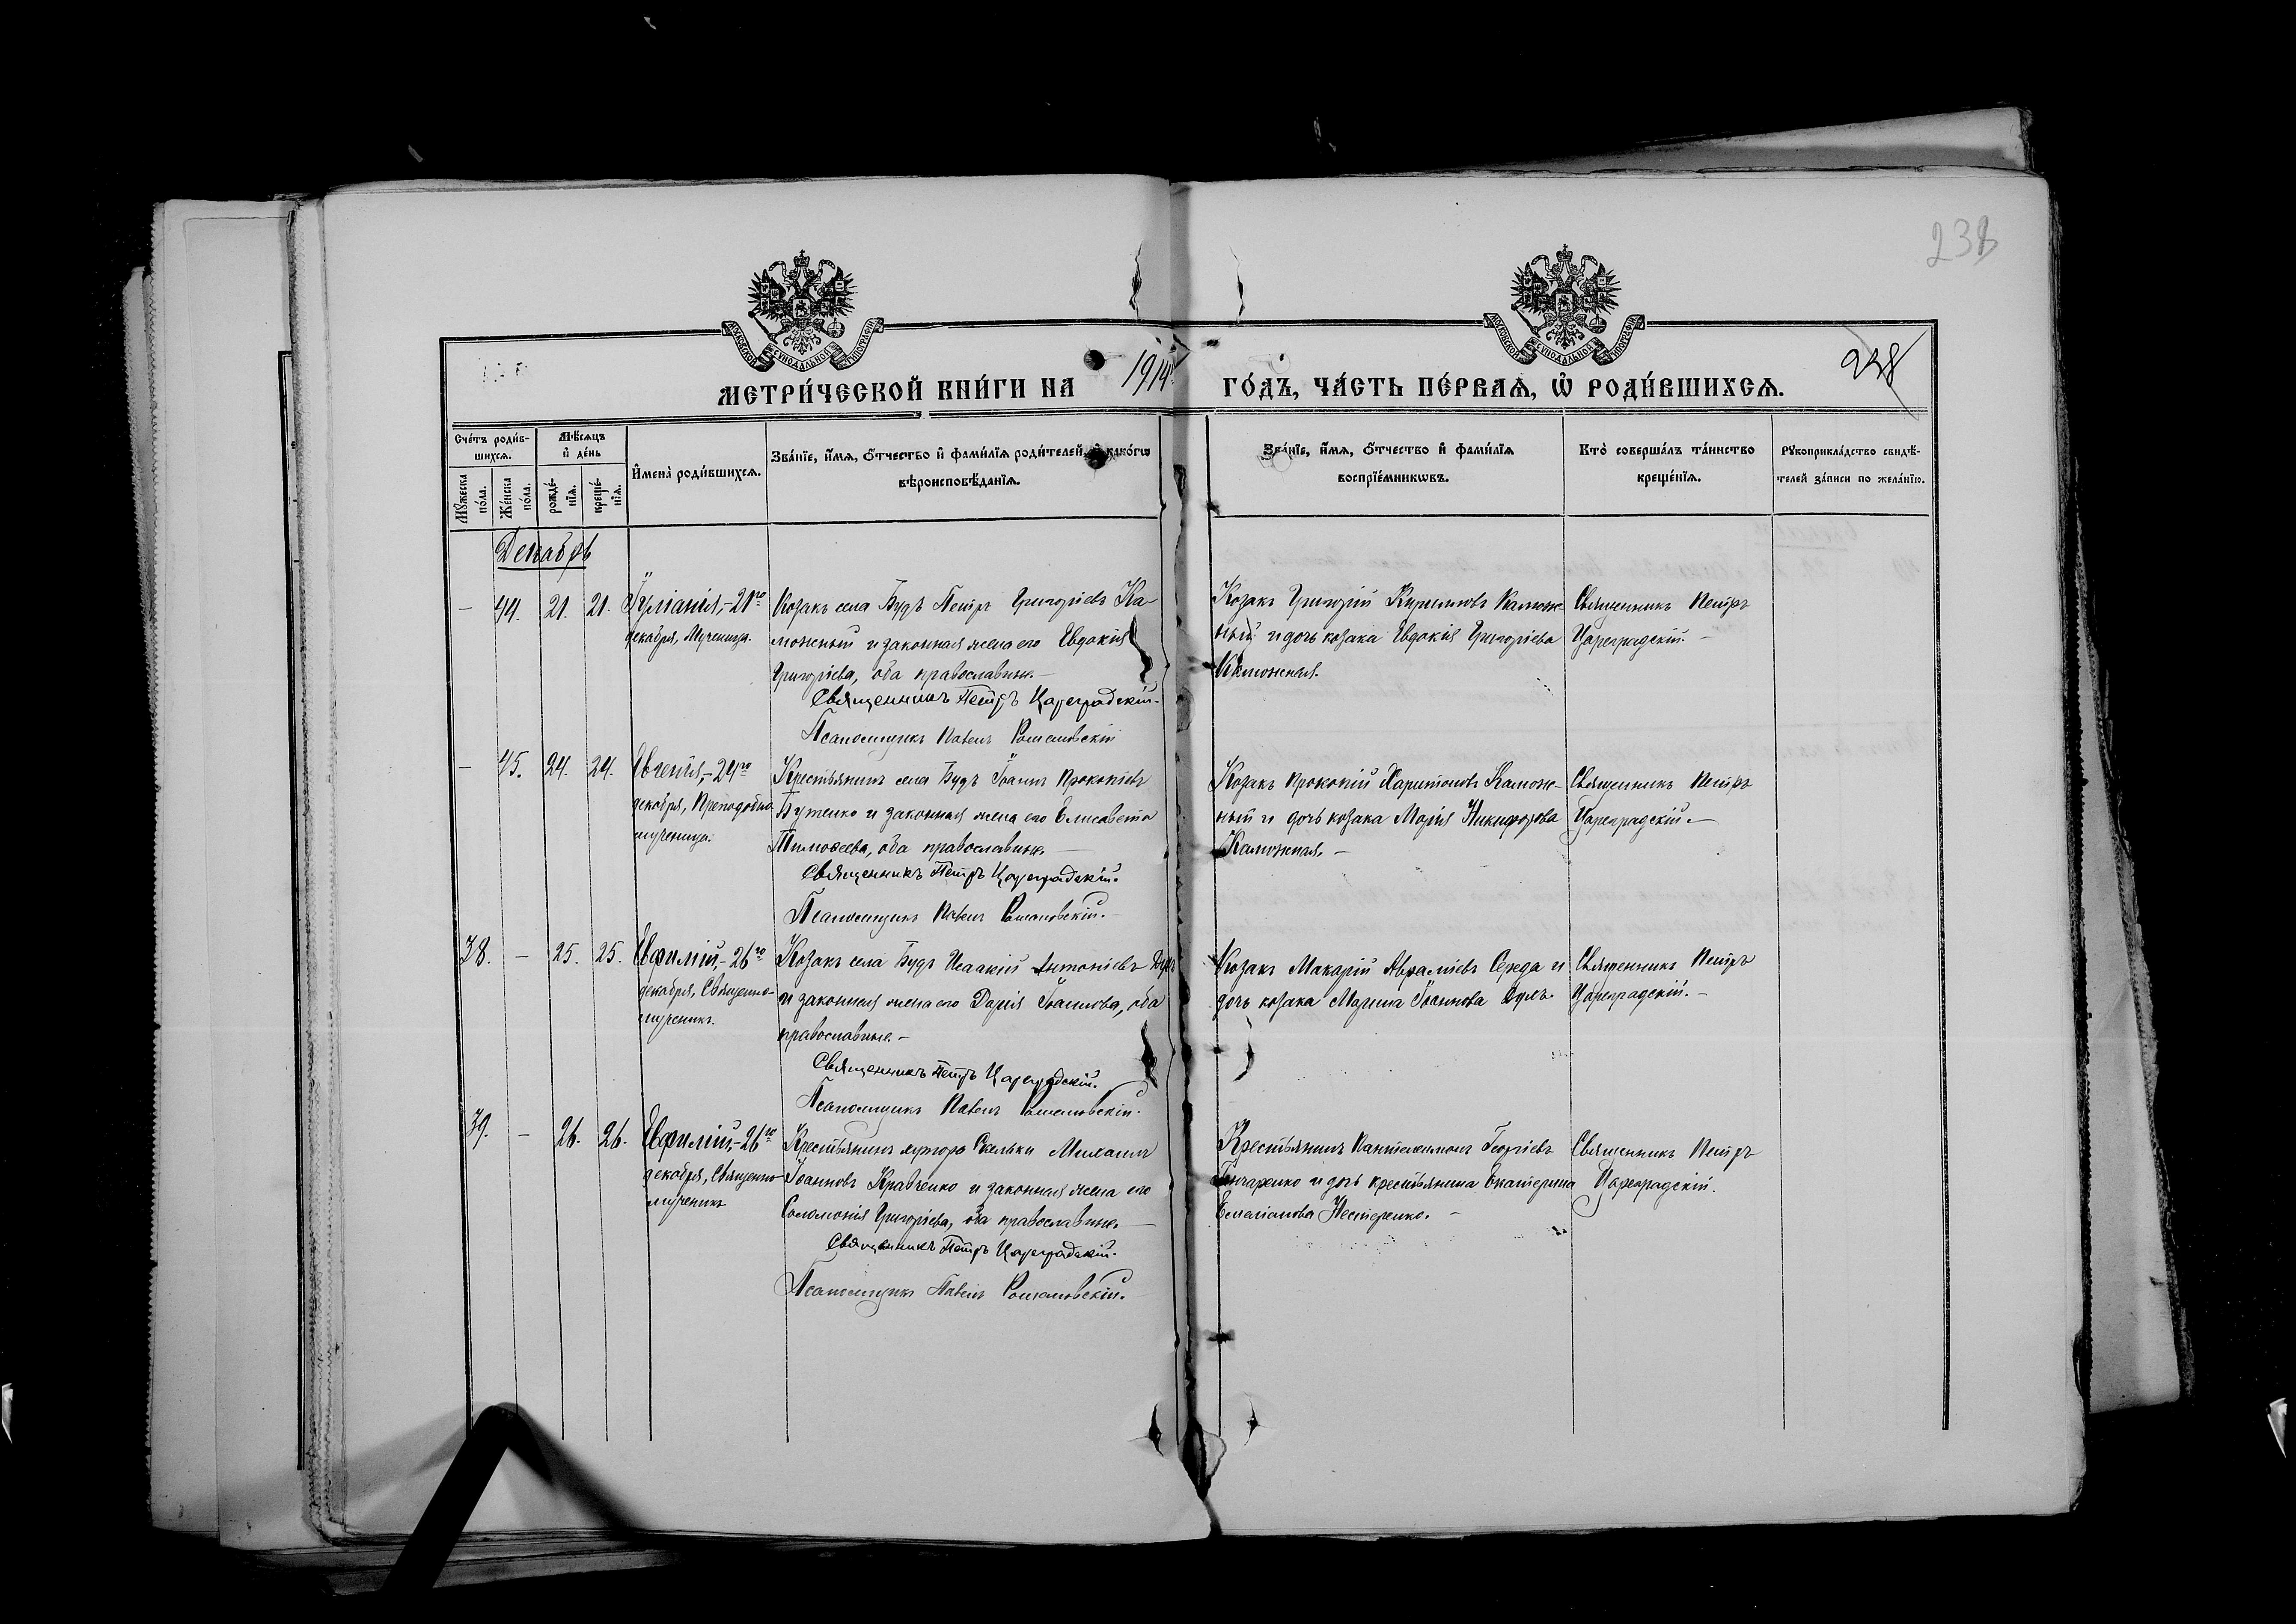 238
238
МОСКОВСКОЙ СѴНОДАЛЬНОЙ ТИПОГРАФІИ
МОСКОВСКОЙ СѴНОДАЛЬНОЙ ТИПОГРАФІИ
МЕТРИ́ЧЕСКОЙ КНИ́ГИ НА 1914 ГО́ДЪ, ЧА́СТЬ ПЕ́РВАѦ, Ѡ҆ РОДИ́ВШИХСѦ.
Сче́тъ роди́в-
шихсѧ.
Мꙋ́жеска по́ла.
Же́нска по́ла.
Мѣ́сѧцъ
и҆ де́нь
рожде́-
нїѧ.
креще́-
нїѧ.
И҆мена̀ роди́вшихсѧ.
Зва́нїе, и҆́мѧ, ѻ҆́тчество и҆ фами́лїѧ роди́телей, и҆ како́гѡ
вѣроисповѣ́данїѧ.
Зва́нїе, и҆́мѧ, ѻ҆́тчество и҆ фами́лїѧ
воспрїе́мникѡвъ.
Кто̀ соверша́лъ та́инство
креще́нїѧ.
Рꙋкоприкла́дство свидѣ́-
телей за́писи по жела́нїю.
Декабрь
— 44. 21. 21. Іуліанія,-21го
декабря, Мученица.
Козакъ села Будъ Петръ Григоріевъ Ка-
моженый и законная жена его Евдокія
Григоріева, оба православные.—
Священникъ Петръ Цареградскій.
Псаломщикъ Павелъ
Козакъ Григорій Кириловъ
ный и дочь козака Евдокія Григоріева
Священникъ Петръ
Цареградскій. —
— 45. 24. 24. Евгенія,-24го
декабря, Преподобно-
мученица.
Крестьянинъ села Будъ Іоаннъ Прокопіевъ
Бутенко и законная жена его Елисавета
Тимофеева, оба православные —
Священникъ Петръ Цареградскій.
Псаломщикъ Павелъ
Козакъ Прокопій Харитоновъ
ный и дочь козака Марія Никифорова
Священникъ Петръ
Цареградскій. —
38. — 25. 25. Евфимій,-26го
декабря, Священно-
мученикъ.
Козакъ села Будъ Исаакій Антоніевъ
и законная жена его Дарія Іоаннова, оба
православные. —
Священникъ Петръ Цареградскій.
Псаломщикъ Павелъ
Козакъ Макарій Авраміевъ Середа и
дочь козака Марина Іоаннова
Священникъ Петръ
Цареградскій. —
39. — 26. 26. Евфимій,-26го
декабря, Священно-
мученикъ
Крестьянинъ хутора Михаилъ
Іоанновъ Кравченко и законная жена его
Соломонія Григоріева, оба православные. —
Священникъ Петръ Цареградскій.
Псаломщикъ Павелъ
Крестьянинъ Пантелеимонъ Георгіевъ
Гончаренко и дочь крестьянина Екатерина
Емеліанова Нестеренко. —
Священникъ Петръ
Цареградскій.